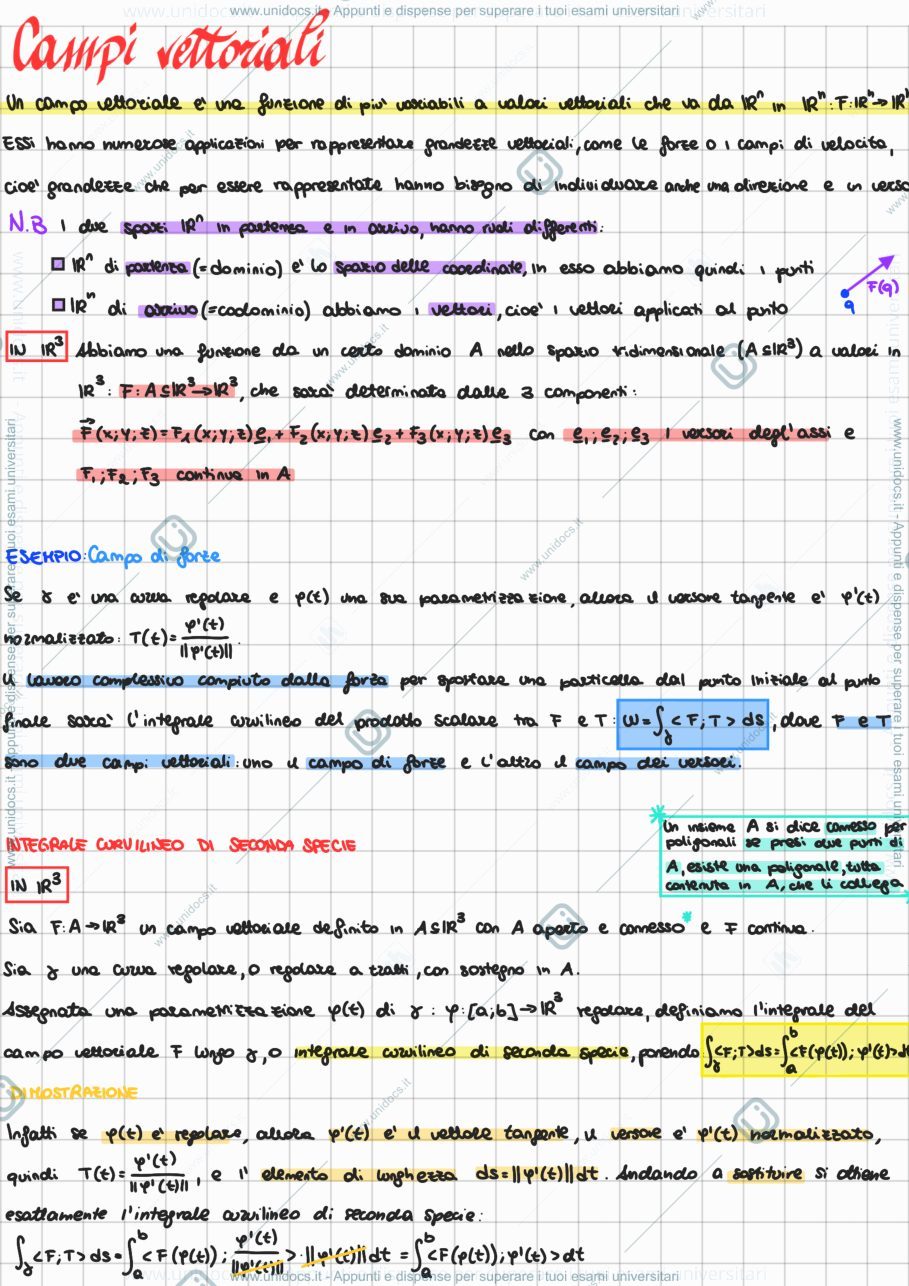 www.unidocs.it - Appunti e dispense per superare i tuoi esami universitari
Campi vettoriali
Un campo vettoriale e' una funzione di piu' variabili a valori vettoriali che va da IRⁿ in IRⁿ: F:IRⁿ→IRⁿ
ESSi hanno numerose applicazioni per rappresentare grandezze vettoriali, come le forze o i campi di velocita,
cioe' grandezze che per essere rappresentate hanno bisogno di individuare anche una direzione e un verso
N.B I due spazi IRⁿ in partenza e in arrivo, hanno ruoli differenti:
IRⁿ di partenza (=dominio) e' lo spazio delle coordinate, in esso abbiamo quindi i punti
IRⁿ di arrivo (=codominio) abbiamo i vettori, cioe' i vettori applicati al punto
F(q)
q
IN IR³ Abbiamo una funzione da un certo dominio A nello spazio tridimensionale (A⊆IR³) a valori in
IR³: F:A⊆IR³→IR³, che sara' determinata dalle 3 componenti:
F⃗(x;y;z)=F₁(x;y;z)e₁+F₂(x;y;z)e₂+F₃(x;y;z)e₃ con e₁;e₂;e₃ i versori degl'assi e
F₁;F₂;F₃ continue in A
ESEMPIO: Campo di forze
Se γ e' una curva regolare e φ(t) una sua parametrizzazione, allora il versore tangente e' φ'(t)
normalizzato: T(t)= φ'(t)/||φ'(t)||.
Il lavoro complessivo compiuto dalla forza per spostare una particella dal punto iniziale al punto
finale sara' l'integrale curvilineo del prodotto scalare tra F e T: W=∫γ <F;T> ds, dove F e T
sono due campi vettoriali: uno il campo di forze e l'altro il campo dei versori.
* Un insieme A si dice connesso per
poligonali se presi due punti di
A, esiste una poligonale, tutta
contenuta in A, che li collega
INTEGRALE CURVILINEO DI SECONDA SPECIE
IN IR³
Sia F:A→IR³ un campo vettoriale definito in A⊆IR³ con A aperto e connesso* e F continua.
Sia γ una curva regolare, o regolare a tratti, con sostegno in A.
Assegnata una parametrizzazione φ(t) di γ : φ:[a;b]→IR³ regolare, definiamo l'integrale del
campo vettoriale F lungo γ, o integrale curvilineo di seconda specie, ponendo ∫γ<F;T>ds=∫ₐᵇ<F(φ(t));φ'(t)>dt
DIMOSTRAZIONE
Infatti se φ(t) e' regolare, allora φ'(t) e' il vettore tangente, il versore e' φ'(t) normalizzato,
quindi T(t)= φ'(t)/||φ'(t)||, e l' elemento di lunghezza ds=||φ'(t)||dt. Andando a sostituire si ottiene
esattamente l'integrale curvilineo di seconda specie:
∫γ<F;T>ds=∫ₐᵇ<F(φ(t)); φ'(t)/||φ'(t)||>·||φ'(t)||dt = ∫ₐᵇ<F(φ(t));φ'(t)>dt
www.unidocs.it - Appunti e dispense per superare i tuoi esami universitari